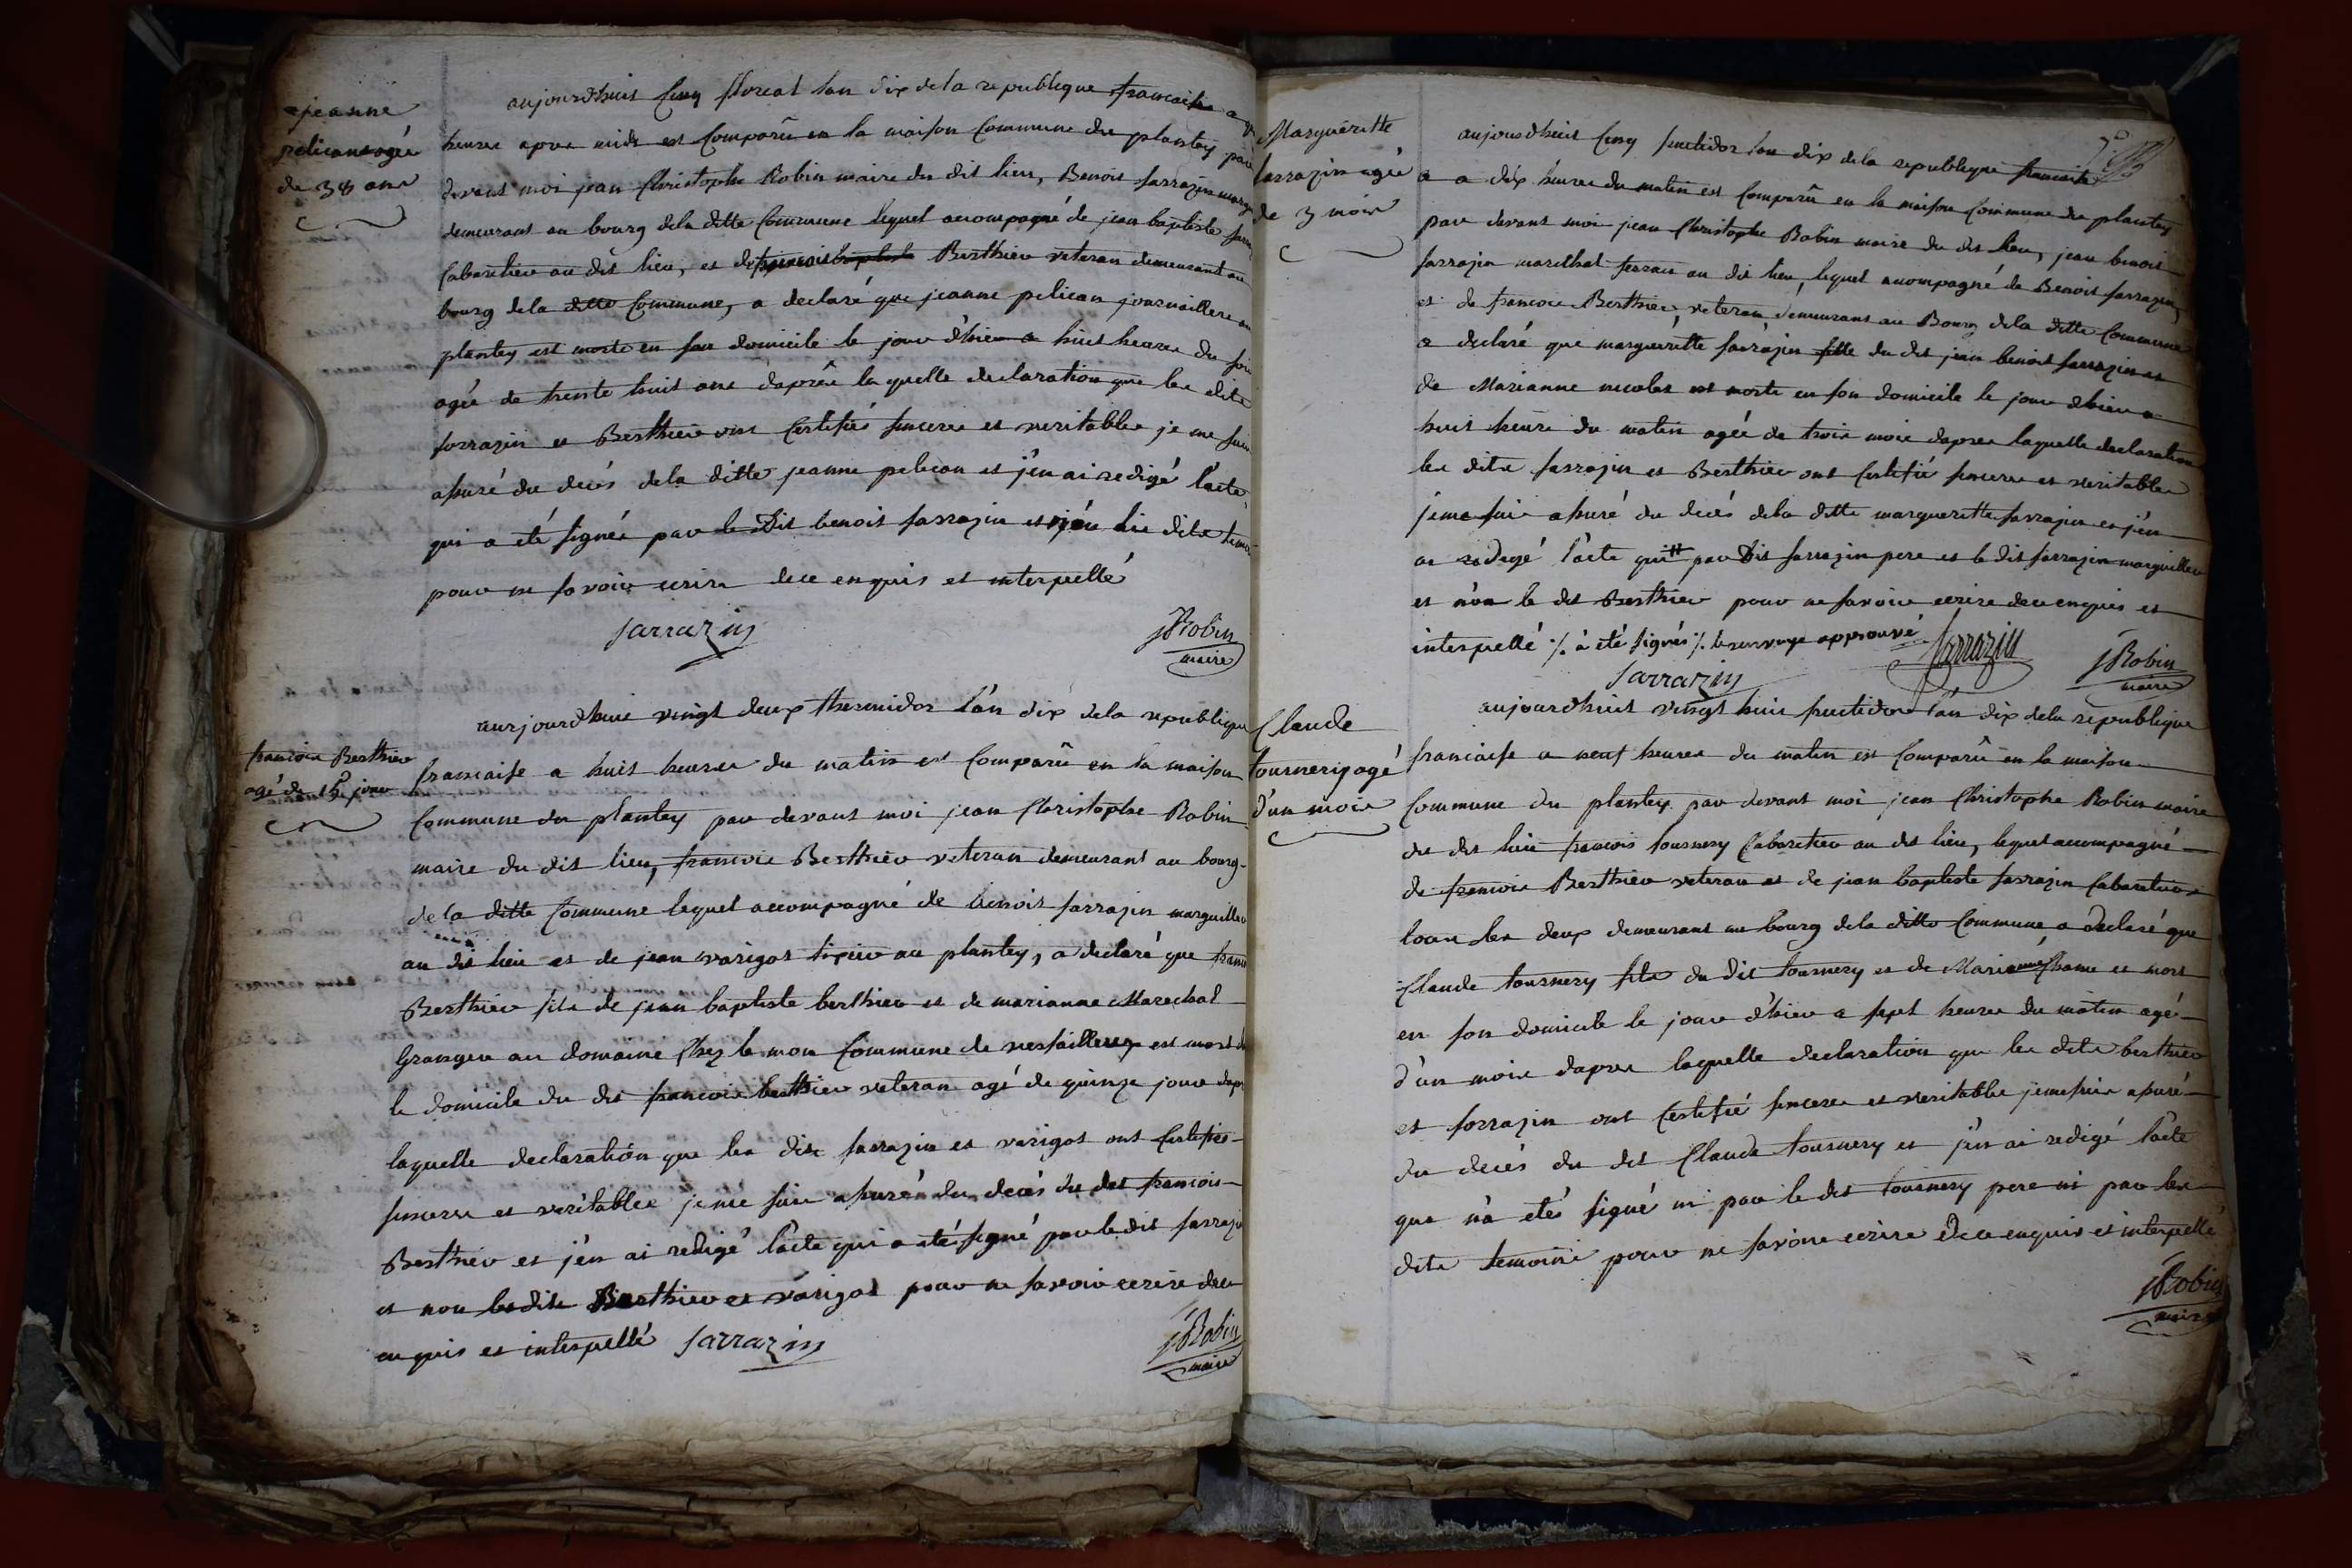 jeanne
pelican agée
de 38 ans
aujourdhuit Cinq floreal lan dix dela republique francaise a
heures apres midi est Comparû en la maison Commune du plantey par
devant moi jean Christophe Robin maire du dit lieu, Benoit sarrazin marg
demeurant au bourg dela ditte Commune lequel accompagné de jean baptiste sarra
Cabaretier au dit lieu, et de Berthier veteran demeurant au
bourg dela ditte Commune, a declaré que jeanne pelican journailliere au
plantey est morte en son domicile le jour d'hier a huit heures du soir
agée de trente huit ans d'après laquelle declaration que les dits
sarrazin et Berthier ont Certifiés sincere et veritable je me suis
assuré du decés dela ditte jeanne pelican et j'en ai redigé l'acte
qui a été signée par le Dit benoit sarrazin et non les dits temoi
pour ne savoir ecrire dece enquis et interpellé
sarrazin
JRobin
maire
francois Berthier
agé de 15 jour
aurjourdhuit vingt deux thermidor l'an dix dela republique
francaise a huit heures du matin est Comparû en la maison
Commune du plantey par devant moi jean Christophe Robin
maire du dit lieu, francois Berthier veteran demeurant au bourg
dela ditte Commune lequel accompagné de benoit sarrazin marguiller
au dit lieu et de jean varigot au plantey, a declaré que franco
Berthier fils de jean baptiste berthier et de marianne Marechal
Granger au domaine Chez le mou Commune de versailleux est mort d
le domicile du dit francois berthier veteran agé de quinze jour dapr
laquelle declaration que les dits sarrazin et varigot ont Certifiés
sincere et veritable je me suis assuré du decés du dit francois
Berthier et j'en ai redigé l'acte qui a été signé par le dit sarrazi
et non lesdits Berthier et varigot pour ne savoir ecrire dece
enquis et interpellé sarrazin
JRobin
maire
Marguéritte
sarrazin agée
de 3 mois
aujourdhuit Cinq fructidor lan dix dela republique francaise
a dix heures du matin est Comparû en la maison Commune du plantey
par devant moi jean Christophe Robin maire du dit lieu, jean benoit
sarrazin marechal ferrant au dit lieu, lequel accompagné de Benoit sarrazin,
et de francois Berthier, veteran demeurant au Bourg dela ditte Commune
a declaré que marguerritte sarrazin fille du dit jean benoit sarrazin et
de Marianne nicolas est morte en son domicile le jour dhier a
huit heure du matin agée de trois mois dapres laquelle declaration
les dits sarrazin et Berthier ont Certifié sincere et veritable
jeme suis assuré du decés dela ditte margueritte sarrazin et j'en
ai redigé l'acte qui par Dit sarrazin pere et le dit sarrazin marguillier
et non le dit Berthier pour ne savoir ecrire dece enquis et
interpellé ⁒ à été signés ⁒ le renvoye approuvé
sarrazin
Sarrazin
JRobin
maire
Claude
tournery agé
d'un mois
aujourdhuit vingt huit fructidor l'an dix dela republique
francaise a neuf heures du matin est Comparû en la maison
Commune du plantey par devant moi jean Christophe Robin maire
du dit lieu francois tournery Cabaretier au dit lieu, lequel accompagné
de francois Berthier veteran et de jean baptiste sarrazin Cabaretier
tous les deux demeurant au bourg dela ditte Commune a declaré que
Claude tournery fils du dit tournery et de Marianne est mort
en son domicile le jour d'hier a sept heures du matin agé
d'un mois dapres laquelle declaration que les dits berthier
et sarrazin ont Certifié sincere et veritable jeme suis assuré
du decés du dit Claude tournery et j'en ai redigé l'acte
que n'a etés signé ni par le dit tournery pere ni par les
dits temoins pour ne savoir ecrire Dece enquis et interpellé
JRobin
maire